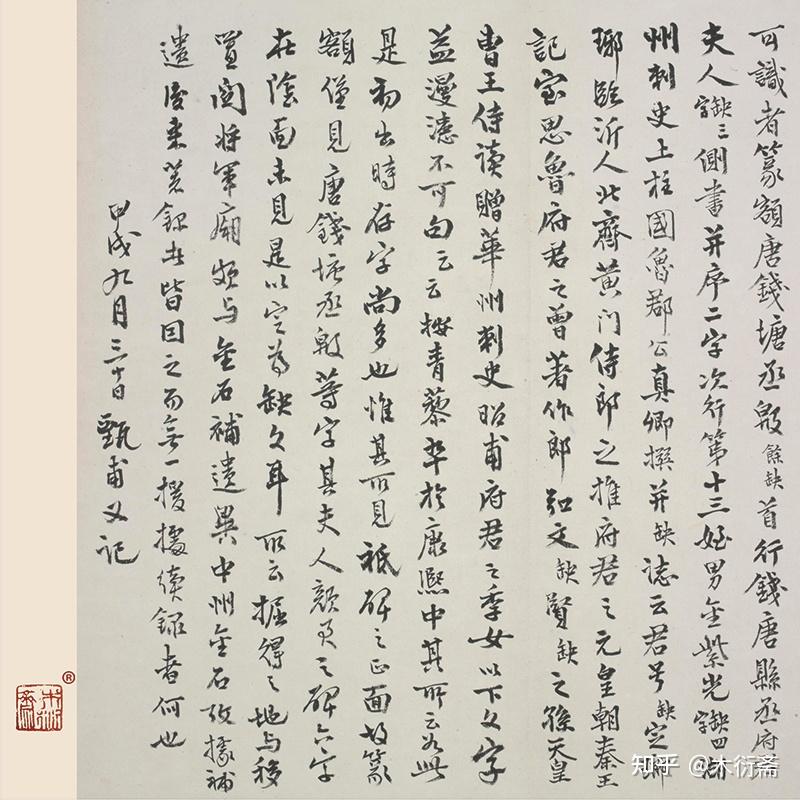 可識者篆額唐錢塘丞殷餘缺首行錢唐縣丞府君
夫人缺三字側書并序二字次行第十三姪男金紫光缺四字湖
州刺史上柱國魯郡公真卿撰并缺誌云君号缺定瑯
琊臨沂人北齊黃门侍郎之推府君之元皇朝秦王
記室思魯府君之曾著作郎弘文缺賢缺之孫天皇
曹王侍读贈華州刺史昭甫府君之季女以下文字
益漫漶不可句云云按青藜卒於康熙中其所云若此
是初出時存字尚多也惟其所見祇碑之正面故篆
額僅見唐錢塘丞殷等字其夫人顏君之碑六字
在陰面未見是以空為缺文耳所云掘得之地与移
置関将軍廟頗与金石補遺異中州金石攷據補
遺後来箸錄者皆因之而無一援據續錄者何也
甲戌九月三十日甄甫又记
木衍斋
®
知乎 @木衍斋